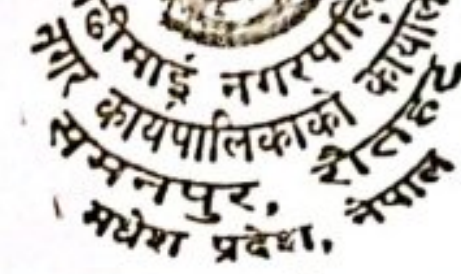 ढीमाई नगरपालि
नगर कार्यपालिकाको कार्याल
समनपुर, रौतहट
मधेश प्रदेश, नेपाल